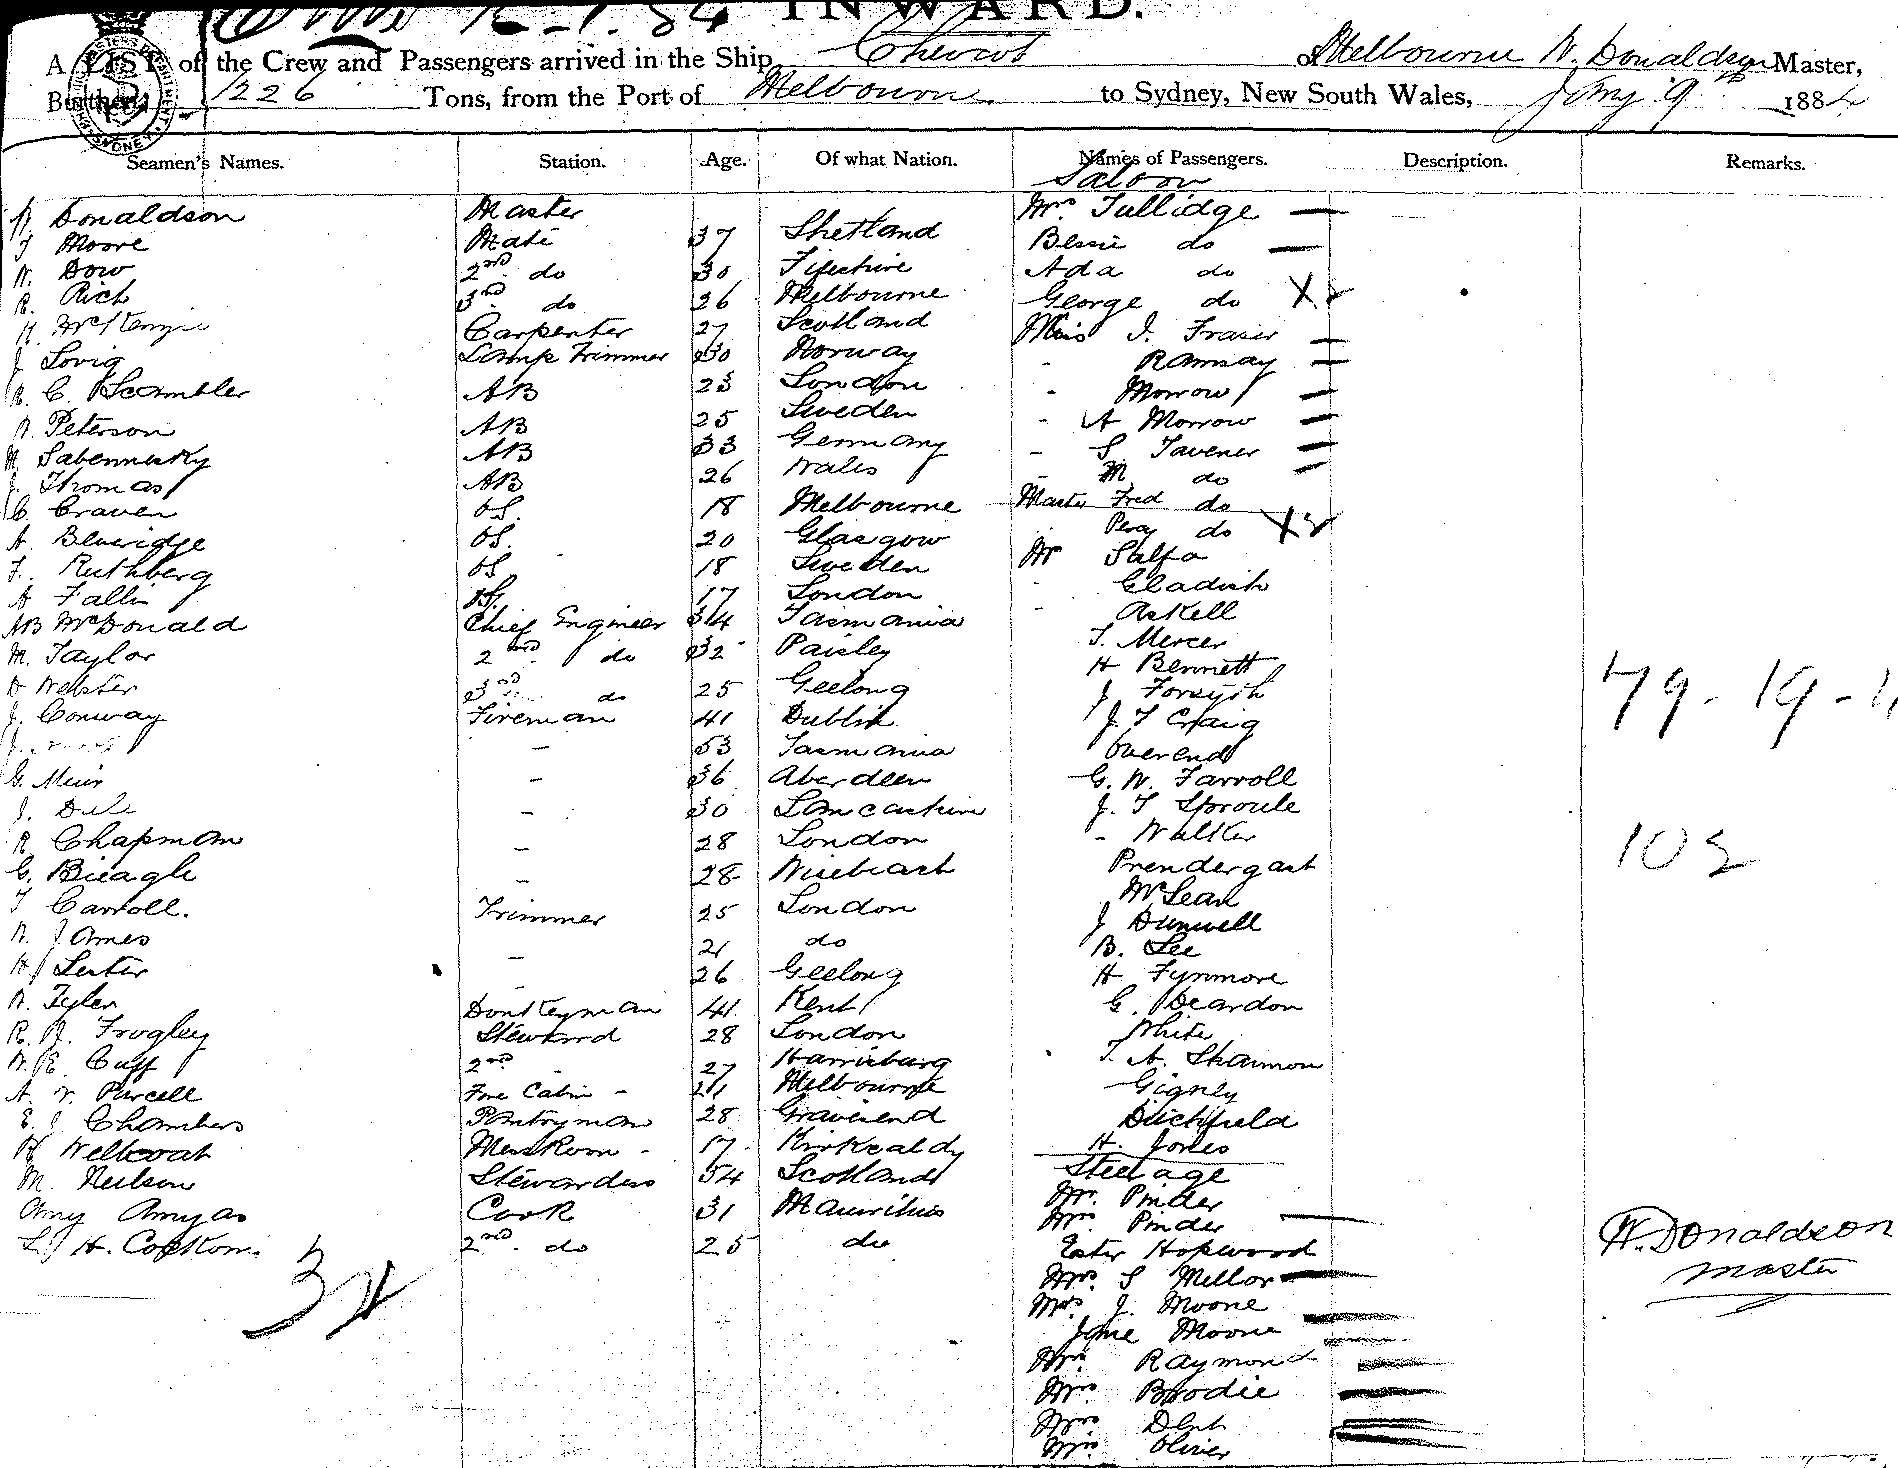 INWARD.
A LIST of the Crew and Passengers arrived in the Ship Cheviot of Melbourne W. Donaldson Master,
Burthen 1226 Tons, from the Port of Melbourne to Sydney, New South Wales, Jany 9 1884
Seamen's Names. Station. Age. Of what Nation. Names of Passengers. Description. Remarks.
Saloon
W. Donaldson Master Mrs. Tullidge
T Moore Mate 37 Shetland Bessie do
W. Dow 2nd do 30 Fifeshire Ada do
R. Rich 3rd do 26 Melbourne George do X
McKenzie Carpenter 27 Scotland Miss J. Fraser
J Lovig Lamp Trimmer 30 Norway Ramsay
R. C. Scambler AB 23 London Morrow
Peterson AB 25 Sweden A Morrow
M. Sabennesky AB 33 Germany S Tavener
J. Thomas AB 26 Wales M do
C Craven OS. 18 Melbourne Master Fred do
A. Beveridge OS. 20 Glasgow Percy do
F. Ruthberg OS 18 Sweden Mr Salfa
A Fallin OS. 17 London Gladish
AB McDonald Chief Engineer 34 Tasmania Askell
M. Taylor 2nd do 32 Paisley T. Mercer
Webster 3rd do 25 Geelong H Bennett
J. Conway Fireman 41 Dublin J Forsyth
53 Tasmania J. T Craig
G. Meir 36 Aberdeen Overend
J. 30 Lancashire G. W. Farroll
R Chapman 28 London J. T Sproule
G. Bieagle 28 Wisebeach Walker
T Carroll. Trimmer 25 London Prendergast
W. James 21 do McLean
H Lester 26 Geelong J Dunwell
W. Tyler Donkeyman 41 Kent B. Lee
R. W. Frogley Steward 28 London H Fynmore
W. E. Cuff 2nd 27 Harrisburg G. Deardon
A. V. Purcell Fore Cabin - 21 Melbourne White
E. J Chambers Pantryman 28 Gravesend T. A. Shannon
Wellcoat MessRoom - 17 Kirkcaldy
M. Neilson Stewardess 54 Scotland Ditchfield
Amy Amyas Cook 31 Mauritius H. Jones
H. 2nd do 25 do
Steerage
Mr. Pinder
Mrs. Pinder
Ester Hopwood
Mrs. S Mellor
Mrs J. Moore
Jane Moore
Mrs. Raymond
Mrs. Brodie
Mrs Dent
Mrs. Oliver
79 - 19 -
102
W. Donaldson
master